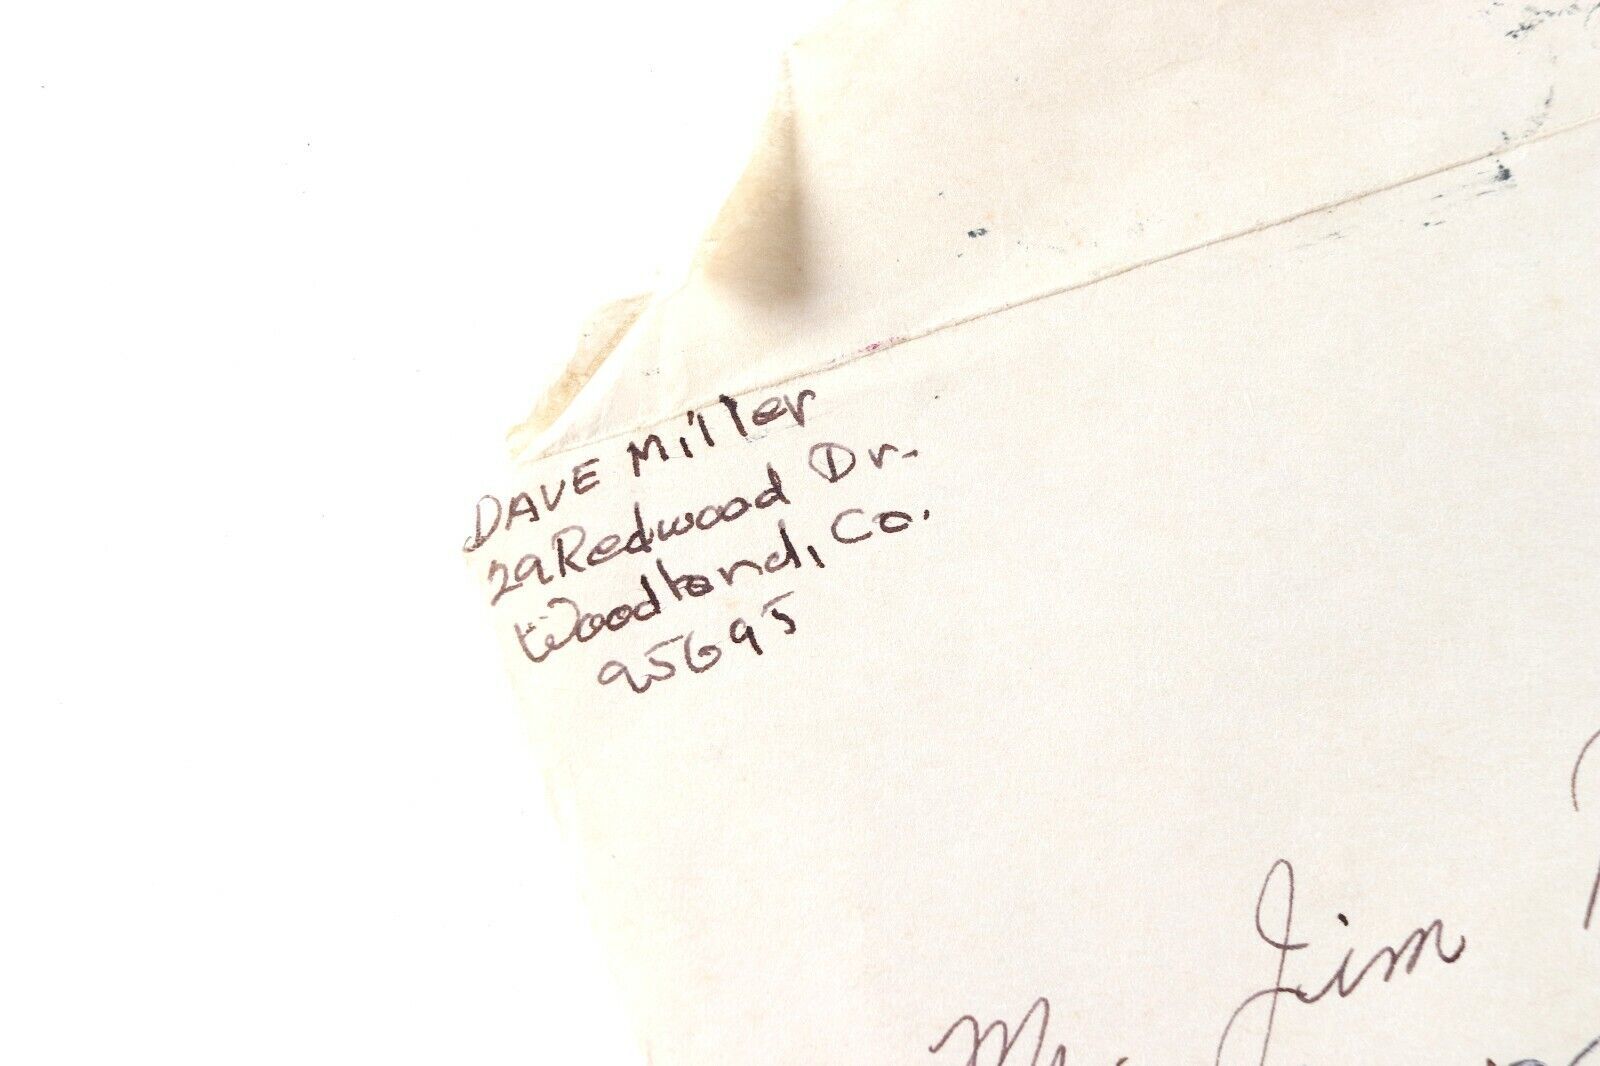 DAVE Miller
29 Redwood Dr.
Woodland, Ca.
95695
Mr. Jim